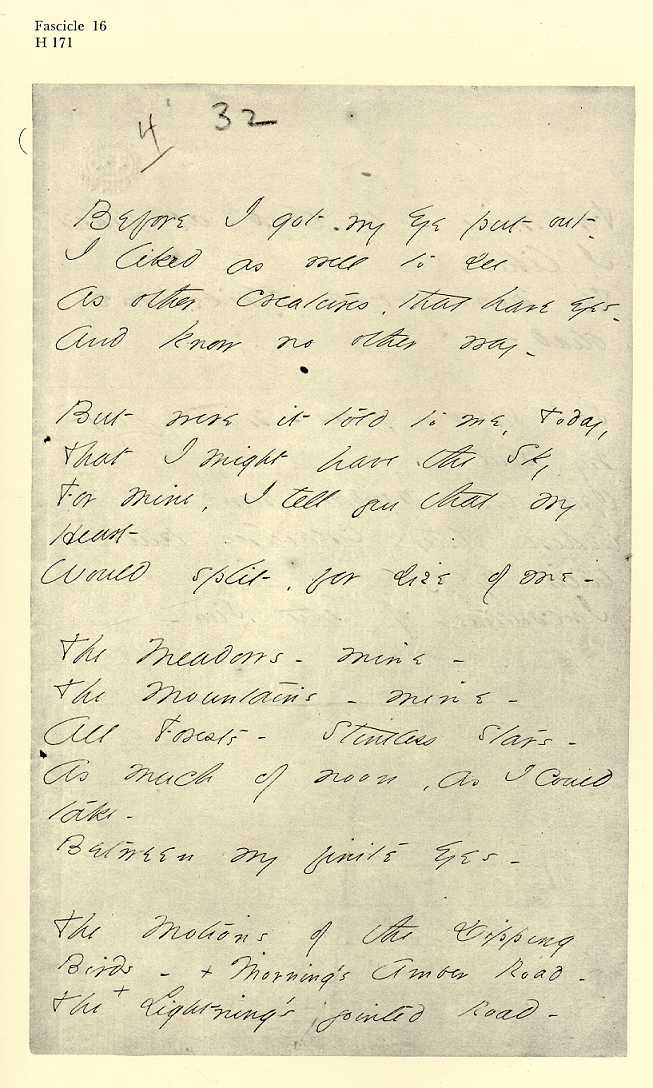 Fascicle 16
H 171
4 32
Before I got my Eye put out -
I liked as well to see
As other Creatures, that have Eyes -
And know no other way -
But were it told to me, Today,
That I might have the Sky
For mine, I tell you that my
Heart
Would split, for size of me -
The Meadows - mine -
The Mountains - mine -
All Forests - Stintless Stars -
As much of noon, as I could
take -
Between my finite Eyes -
The Motions of the Dipping
Birds - + Morning's Amber Road -
The + Lightning's jointed Road -